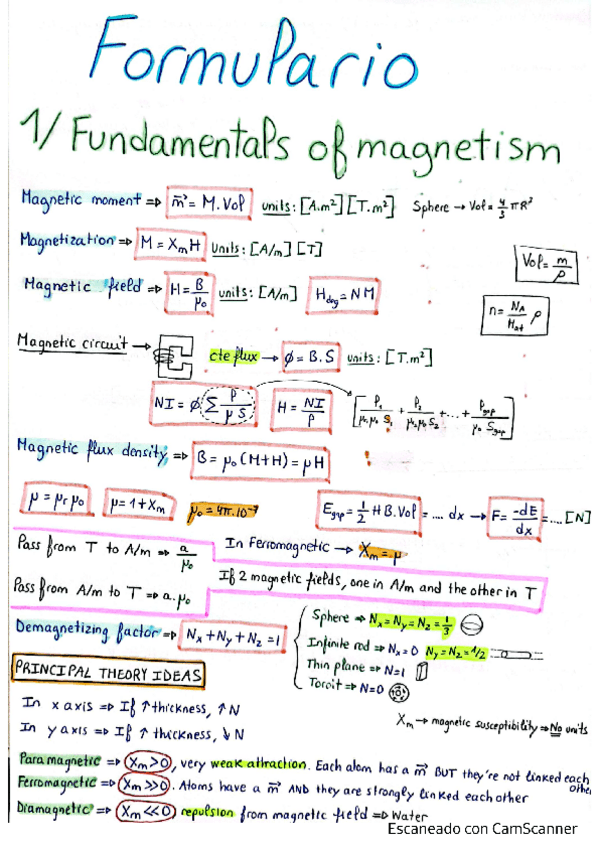 Formulario
1/ Fundamentals of magnetism
Magnetic moment => m⃗ = M.Vol units: [A.m²] [T.m²] Sphere → Vol = 4/3 πR³
Magnetization => M = XmH units: [A/m] [T]
Vol = m/ρ
Magnetic field => H = B/μ₀ units: [A/m] Hdeg = NM
n = NA/Mat ρ
Magnetic circuit → cte flux → ϕ = B.S units: [T.m²]
NI = ϕ Σ l/(μ S) H = NI/l [l₁/(μ₁μ₀ S₁) + l₂/(μ₂μ₀ S₂) + ... + lgap/(μ₀ Sgap)]
Magnetic flux density => B = μ₀ (M+H) = μH !
μ = μr μ₀ μ = 1 + Xm μ₀ = 4π.10⁻⁷ Egap = 1/2 H B.Vol = .... dx → F = -dE/dx = .... [N]
Pass from T to A/m => a/μ₀ In Ferromagnetic → Xm = μ
Pass from A/m to T => a.μ₀ If 2 magnetic fields, one in A/m and the other in T
Demagnetizing factor => Nx + Ny + Nz = 1
Sphere => Nx = Ny = Nz = 1/3
Infinite rod => Nx = 0 Ny = Nz = 1/2
Thin plane => N=1
Toroit => N=0
PRINCIPAL THEORY IDEAS
In x axis => If ↑ thickness, ↑ N
In y axis => If ↑ thickness, ↓ N
Xm → magnetic susceptibility => No units
Paramagnetic => Xm>0, very weak attraction. Each atom has a m⃗ BUT they're not linked each other
Ferromagnetic => Xm >>0. Atoms have a m⃗ AND they are strongly linked each other
Dramagnetic => Xm <<0 repulsion from magnetic field => Water
Escaneado con CamScanner